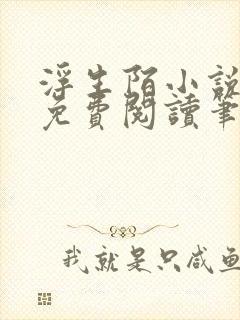 浮生陌小說
免費閱讀筆
我就是只咸魚